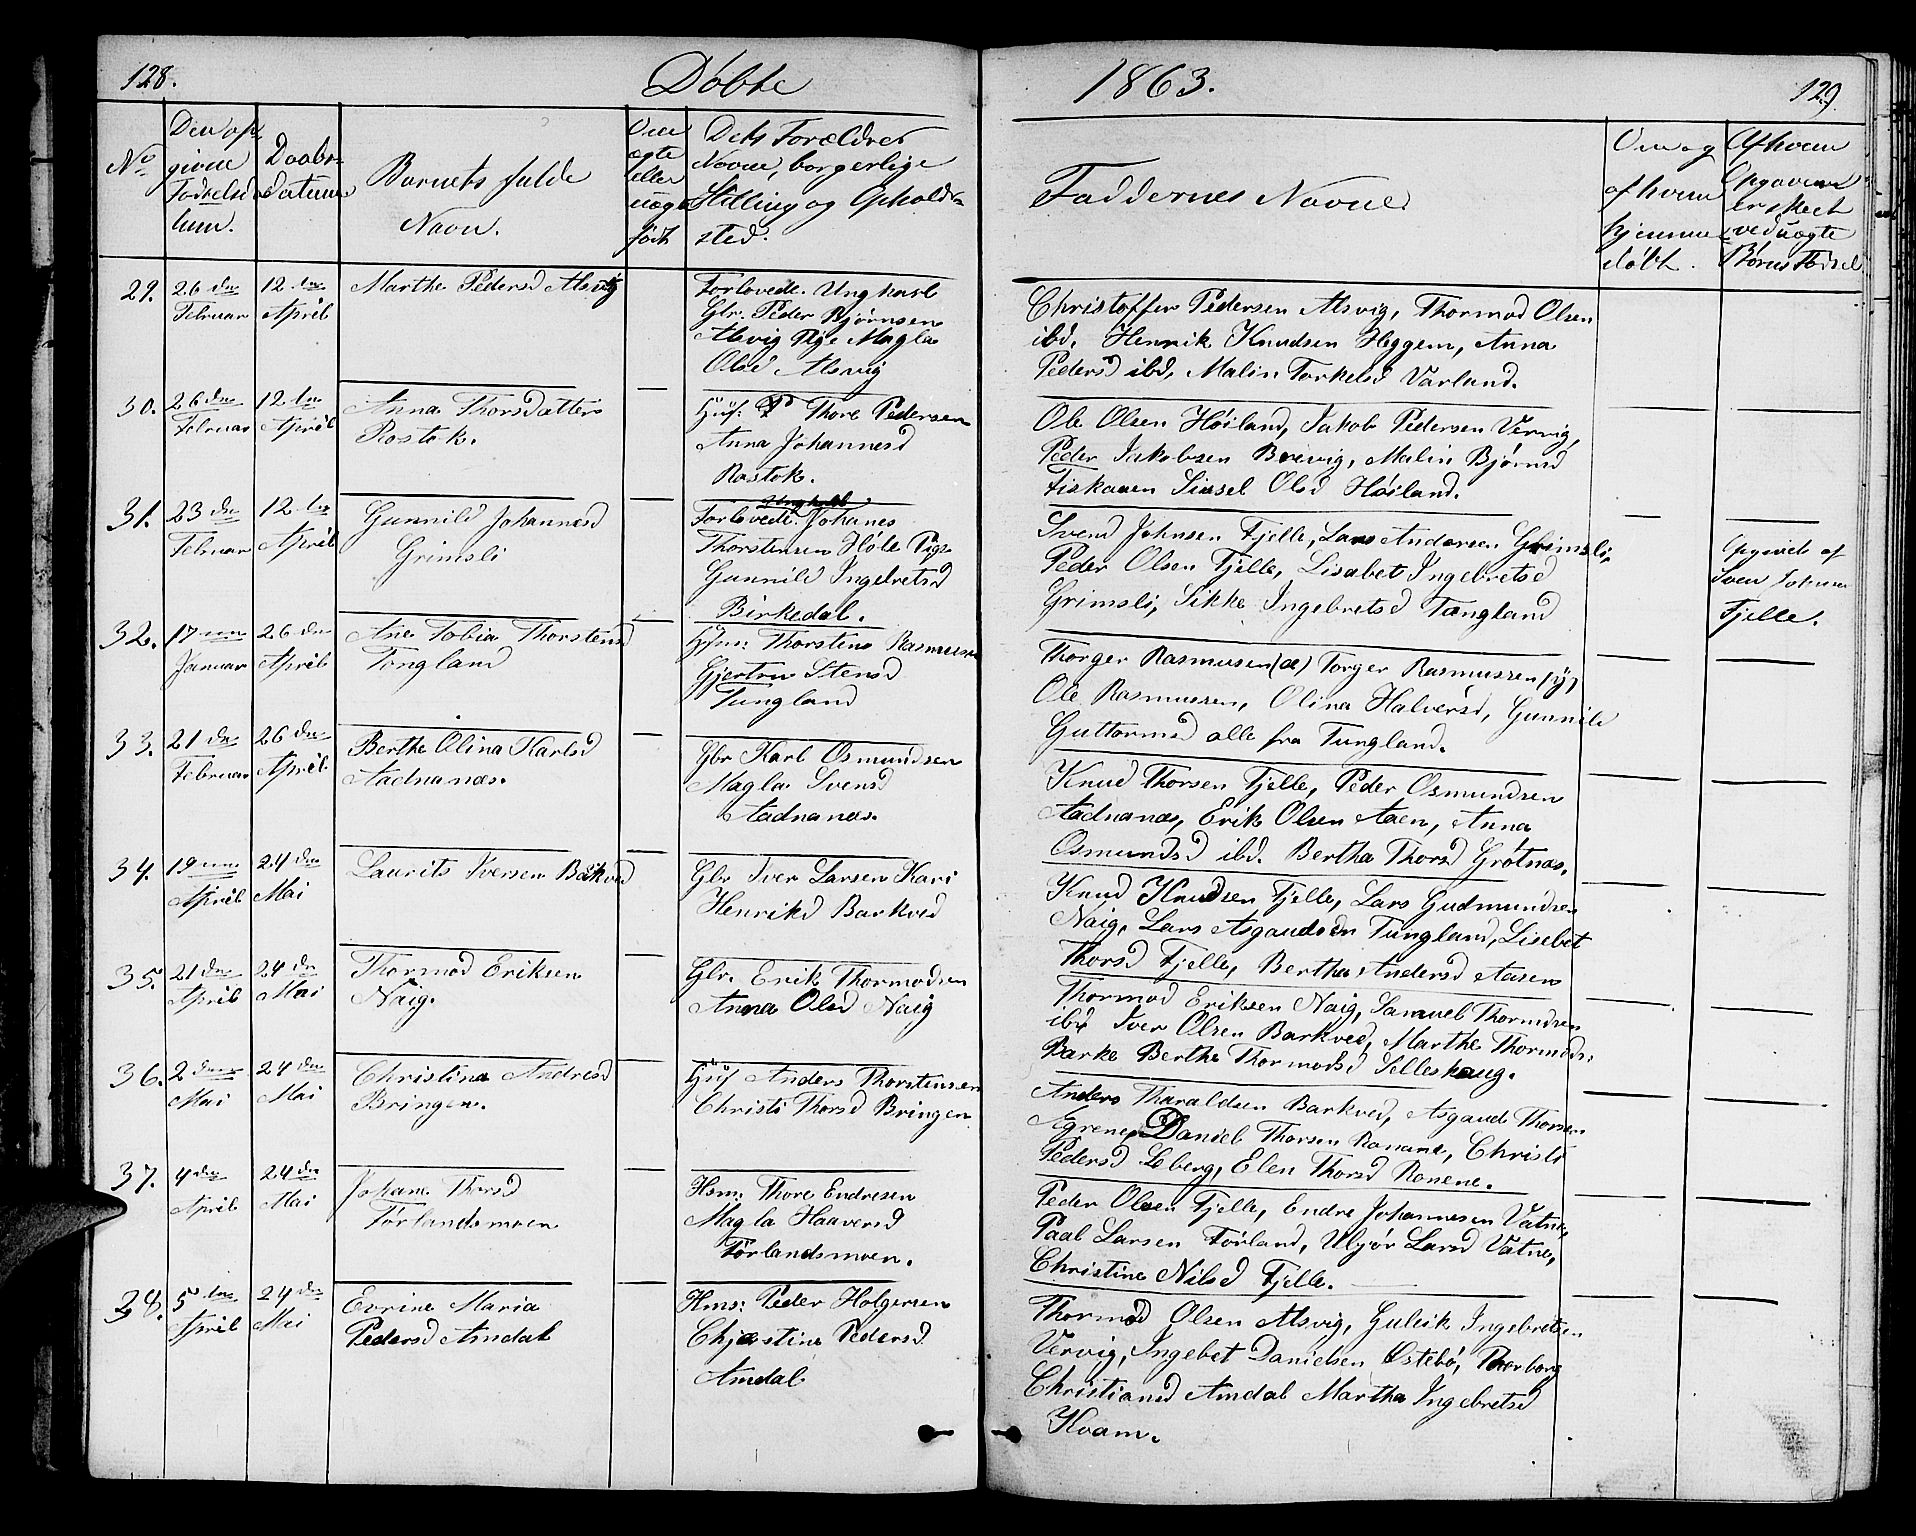 128.
Döbte
1863.
129.
No
Den op=
givne
Fødselsda=
tum.
Daabs=
datum
Barnets fulde
Navn.
Om
ægte
eller
uægte
født
Dets Forældres
Navne, borgerlige
Stilling og Opholds=
sted.
Faddernes Navne
Om og
af hvem
hjemme=
døbt.
Af hvem
Opgaven
er skeet
ved uægte
Børns Fødsel
29.
26 de
Februar
12 te
April
Marthe Pedersd Alsvig
Forlovede. Ungkarl
Gbr. Peder Bjørnsen
Alsvig Pige Magla
Olsd Alsvig
Christoffer Pedersen Alsvig, Thormod Olsen
ibd. Henrik Knudsen Heggem, Anna
Pedersd ibd, Malin Torkelsd Varland.
30.
26 de
Februar
12 te
April
Anna Thorsdatter
Rostok.
Huf: Thore Pedersen
Anna Johannesd
Rostok.
Ole Olsen Høiland, Jakob Pedersen Vervig,
Peder Jakobsen Brevig, Malin Bjørnsd
Fiskaaen Sissel Olsd Høiland.
31.
23 de
Februar
12 te
April
Gunnild Johannesd
Grimsli
Ungkarl
Forlovede. Johanes
Thorstensen Hole Pige
Gunnild Ingebretsd
Birkedal.
Svend Johnsen Fjelle, Lars Andersen Grimsli,
Peder Olsen Fjelle, Lisabet Ingebretsd
Grimsli, Sikke Ingebretsd Tungland
Opgivet af
Sven Johnsen
Fjelle.
32.
17 nn
Januar
26 de
April
Ane Tobia Thorstensd
Tongland
Hsm: Thorsten Rasmussen
Gjertru Stensd
Tungland
Thorger Rasmusen (æ) Torger Rasmussen (y),
Ole Rasmussen, Olina Halversd, Gunnild
Guttormsd alle fra Tungland.
33.
21 de
Februar
26 de
April
Berthe Olina Karlsd
Aadnanæs.
Gbr Karl Osmundsen
Magla Svensd
Aadnanæs.
Knud Thorsen Fjelle, Peder Osmundsen
Aadnanæs, Erik Olsen Aaen, Anna
Osmundsd ibd. Bertha Thorsd Grøtnæs,
34.
19 nn
April
24 de
Mai
Laurits Iversen Barkved
Gbr Iver Larsen Kari
Henriksd Barkved
Knud Knudsen Fjelle, Lars Gudmundsen
Naig, Lars Asgaudsen Tungland, Lisebet
Thorsd Fjelle, Bertha Andersd Aasen
35.
21 de
April
24 de
Mai
Thormod Eriksen
Naig.
Gbr. Erik Thormodsen
Anna Olsd Naig
Thormod Eriksen Naig, Samuel Thormdsen
ibd Iver Olsen Barkved, Marthe Thormods:
Barke Berthe Thormodsd Selleskaug.
36.
2 den
Mai
24 de
Mai
Christina Andresd
Bringen.
Huf Anders Thorstensen
Christi Thorsd Bringen
Anders Tharaldsen Barkved, Asgaud Thorsen
Agrene, Daniel Thorsen Ronane, Christi
Pedersd Leberg, Elen Thorsd Ronene.
37.
4 de
April
24 de
Mai
Johane Thorsd
Førlandsmoen
Hsm: Thore Endresen
Magla Haaversd
Førlandsmoen.
Peder Olsen Fjelle, Endre Johannesen Vatne,
Paal Larsen Førland, Ulsjør Larsd Vatne,
Christine Nilsd Fjelle.
38.
5 te
April
24 de
Mai
Evrine Maria
Pedersd Amdal
Hms: Peder Holgersen
Chjerstine Pedersd
Amdal
Thormod Olsen Alsvig, Gulik Ingebretsen
Vervig, Ingebet Danielsen Østebø, Thorborg
Christiansd Amdal Martha Ingebretsd
Kvam.